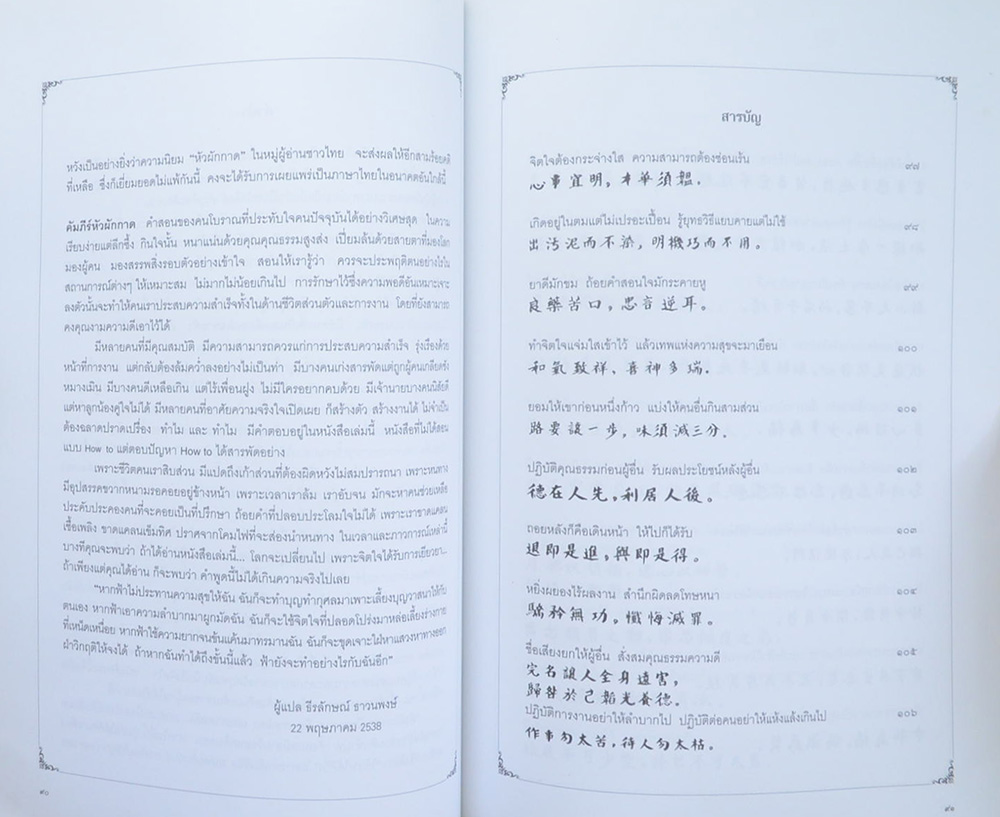 หวังเป็นอย่างยิ่งว่าความนิยม “หัวผักกาด” ในหมู่ผู้อ่านชาวไทย จะส่งผลให้อีกสามร้อยคดี
ที่เหลือ ซึ่งก็เยี่ยมยอดไม่แพ้กันนี้ คงจะได้รับการเผยแพร่เป็นภาษาไทยในอนาคตอันใกล้นี้
คัมภีร์หัวผักกาด คำสอนของคนโบราณที่ประทับใจคนปัจจุบันได้อย่างวิเศษสุด ในความ
เรียบง่ายแต่ลึกซึ้ง กินใจนั้น หนาแน่นด้วยคุณคุณธรรมสูงส่ง เปี่ยมล้นด้วยสายตาที่มองโลก
มองผู้คน มองสรรพสิ่งรอบตัวอย่างเข้าใจ สอนให้เรารู้ว่า ควรจะประพฤติตนอย่างไรใน
สถานการณ์ต่างๆ ให้เหมาะสม ไม่มากไม่น้อยเกินไป การรักษาไว้ซึ่งความพอดีอันเหมาะเจาะ
ลงตัวนั้นจะทำให้คนเราประสบความสำเร็จทั้งในด้านชีวิตส่วนตัวและการงาน โดยที่ยังสามารถ
คงคุณงามความดีเอาไว้ได้
มีหลายคนที่มีคุณสมบัติ มีความสามารถควรแก่การประสบความสำเร็จ รุ่งเรืองด้วย
หน้าที่การงาน แต่กลับต้องล้มคว่ำลงอย่างไม่เป็นท่า มีบางคนเก่งสารพัดแต่ถูกผู้คนเกลียดชัง
หมางเมิน มีบางคนดีเหลือเกิน แต่ไร้เพื่อนฝูง ไม่มีใครอยากคบด้วย มีเจ้านายบางคนนิสัยดี
แต่หาลูกน้องคู่ใจไม่ได้ มีหลายคนที่อาศัยความจริงใจเปิดเผย ก็สร้างตัว สร้างงานได้ ไม่จำเป็น
ต้องฉลาดปราดเปรื่อง ทำไม และ ทำไม มีคำตอบอยู่ในหนังสือเล่มนี้ หนังสือที่ไม่ได้สอน
แบบ How to แต่ตอบปัญหา How to ได้สารพัดอย่าง
เพราะชีวิตคนเราสิบส่วน มีแปดถึงเก้าส่วนที่ต้องผิดหวังไม่สมปรารถนา เพราะหนทาง
มีอุปสรรคขวากหนามรอคอยอยู่ข้างหน้า เพราะเวลาเราล้ม เราอับจน มักจะหาคนช่วยเหลือ
ประคับประคองคนที่จะคอยเป็นที่ปรึกษา ถ้อยคำที่ปลอบประโลมใจไม่ได้ เพราะเราขาดแคลน
เชื้อเพลิง ขาดแคลนเข็มทิศ ปราศจากโคมไฟที่จะส่องนำหนทาง ในเวลาและภาวการณ์เหล่านี้
บางทีคุณจะพบว่า ถ้าได้อ่านหนังสือเล่มนี้... โลกจะเปลี่ยนไป เพราะจิตใจได้รับการเยียวยา...
ถ้าเพียงแต่คุณได้อ่าน ก็จะพบว่า คำพูดนี้ไม่ได้เกินความจริงไปเลย
“หากฟ้าไม่ประทานความสุขให้ฉัน ฉันก็จะทำบุญทำกุศลมาเพาะเลี้ยงบุญวาสนาให้กับ
ตนเอง หากฟ้าเอาความลำบากมาผูกมัดฉัน ฉันก็จะใช้จิตใจที่ปลอดโปร่งมาหล่อเลี้ยงร่างกาย
ที่เหน็ดเหนื่อย หากฟ้าใช้ความยากจนข้นแค้นมาทรมานฉัน ฉันก็จะขุดเจาะใฝ่หาแสวงหาทางออก
ฝ่าวิกฤติให้จงได้ ถ้าหากฉันทำได้ถึงขั้นนี้แล้ว ฟ้ายังจะทำอย่างไรกับฉันอีก”
ผู้แปล ธีรลักษณ์ ธาวนพงษ์
22 พฤษภาคม 2538
๙๐
สารบัญ
จิตใจต้องกระจ่างใส ความสามารถต้องซ่อนเร้น ๙๗
心事宜明，才華須韞．
เกิดอยู่ในตมแต่ไม่เปรอะเปื้อน รู้ยุทธวิธีแยบคายแต่ไม่ใช้ ๙๘
出污泥而不染，明機巧而不用。
ยาดีมักขม ถ้อยคำสอนใจมักระคายหู ๙๙
良藥苦口，忠言逆耳。
ทำจิตใจแจ่มใสเข้าไว้ แล้วเทพแห่งความสุขจะมาเยือน ๑๐๐
和氣致祥、喜神多瑞．
ยอมให้เขาก่อนหนึ่งก้าว แบ่งให้คนอื่นกินสามส่วน ๑๐๑
路要讓一步，味須減三分．
ปฏิบัติคุณธรรมก่อนผู้อื่น รับผลประโยชน์หลังผู้อื่น ๑๐๒
德在人先，利居人後。
ถอยหลังก็คือเดินหน้า ให้ไปก็ได้รับ ๑๐๓
退即是進，與即是得。
หยิ่งผยองไร้ผลงาน สำนึกผิดลดโทษหนา ๑๐๔
驕矜無功，懺悔減罪。
ชื่อเสียงยกให้ผู้อื่น สั่งสมคุณธรรมความดี ๑๐๕
完名讓人全身遠害，
歸咎於己韜光養德．
ปฏิบัติการงานอย่าให้ลำบากไป ปฏิบัติต่อคนอย่าให้แห้งแล้งเกินไป ๑๐๖
作事勿太苦，待人勿太枯。
๙๑